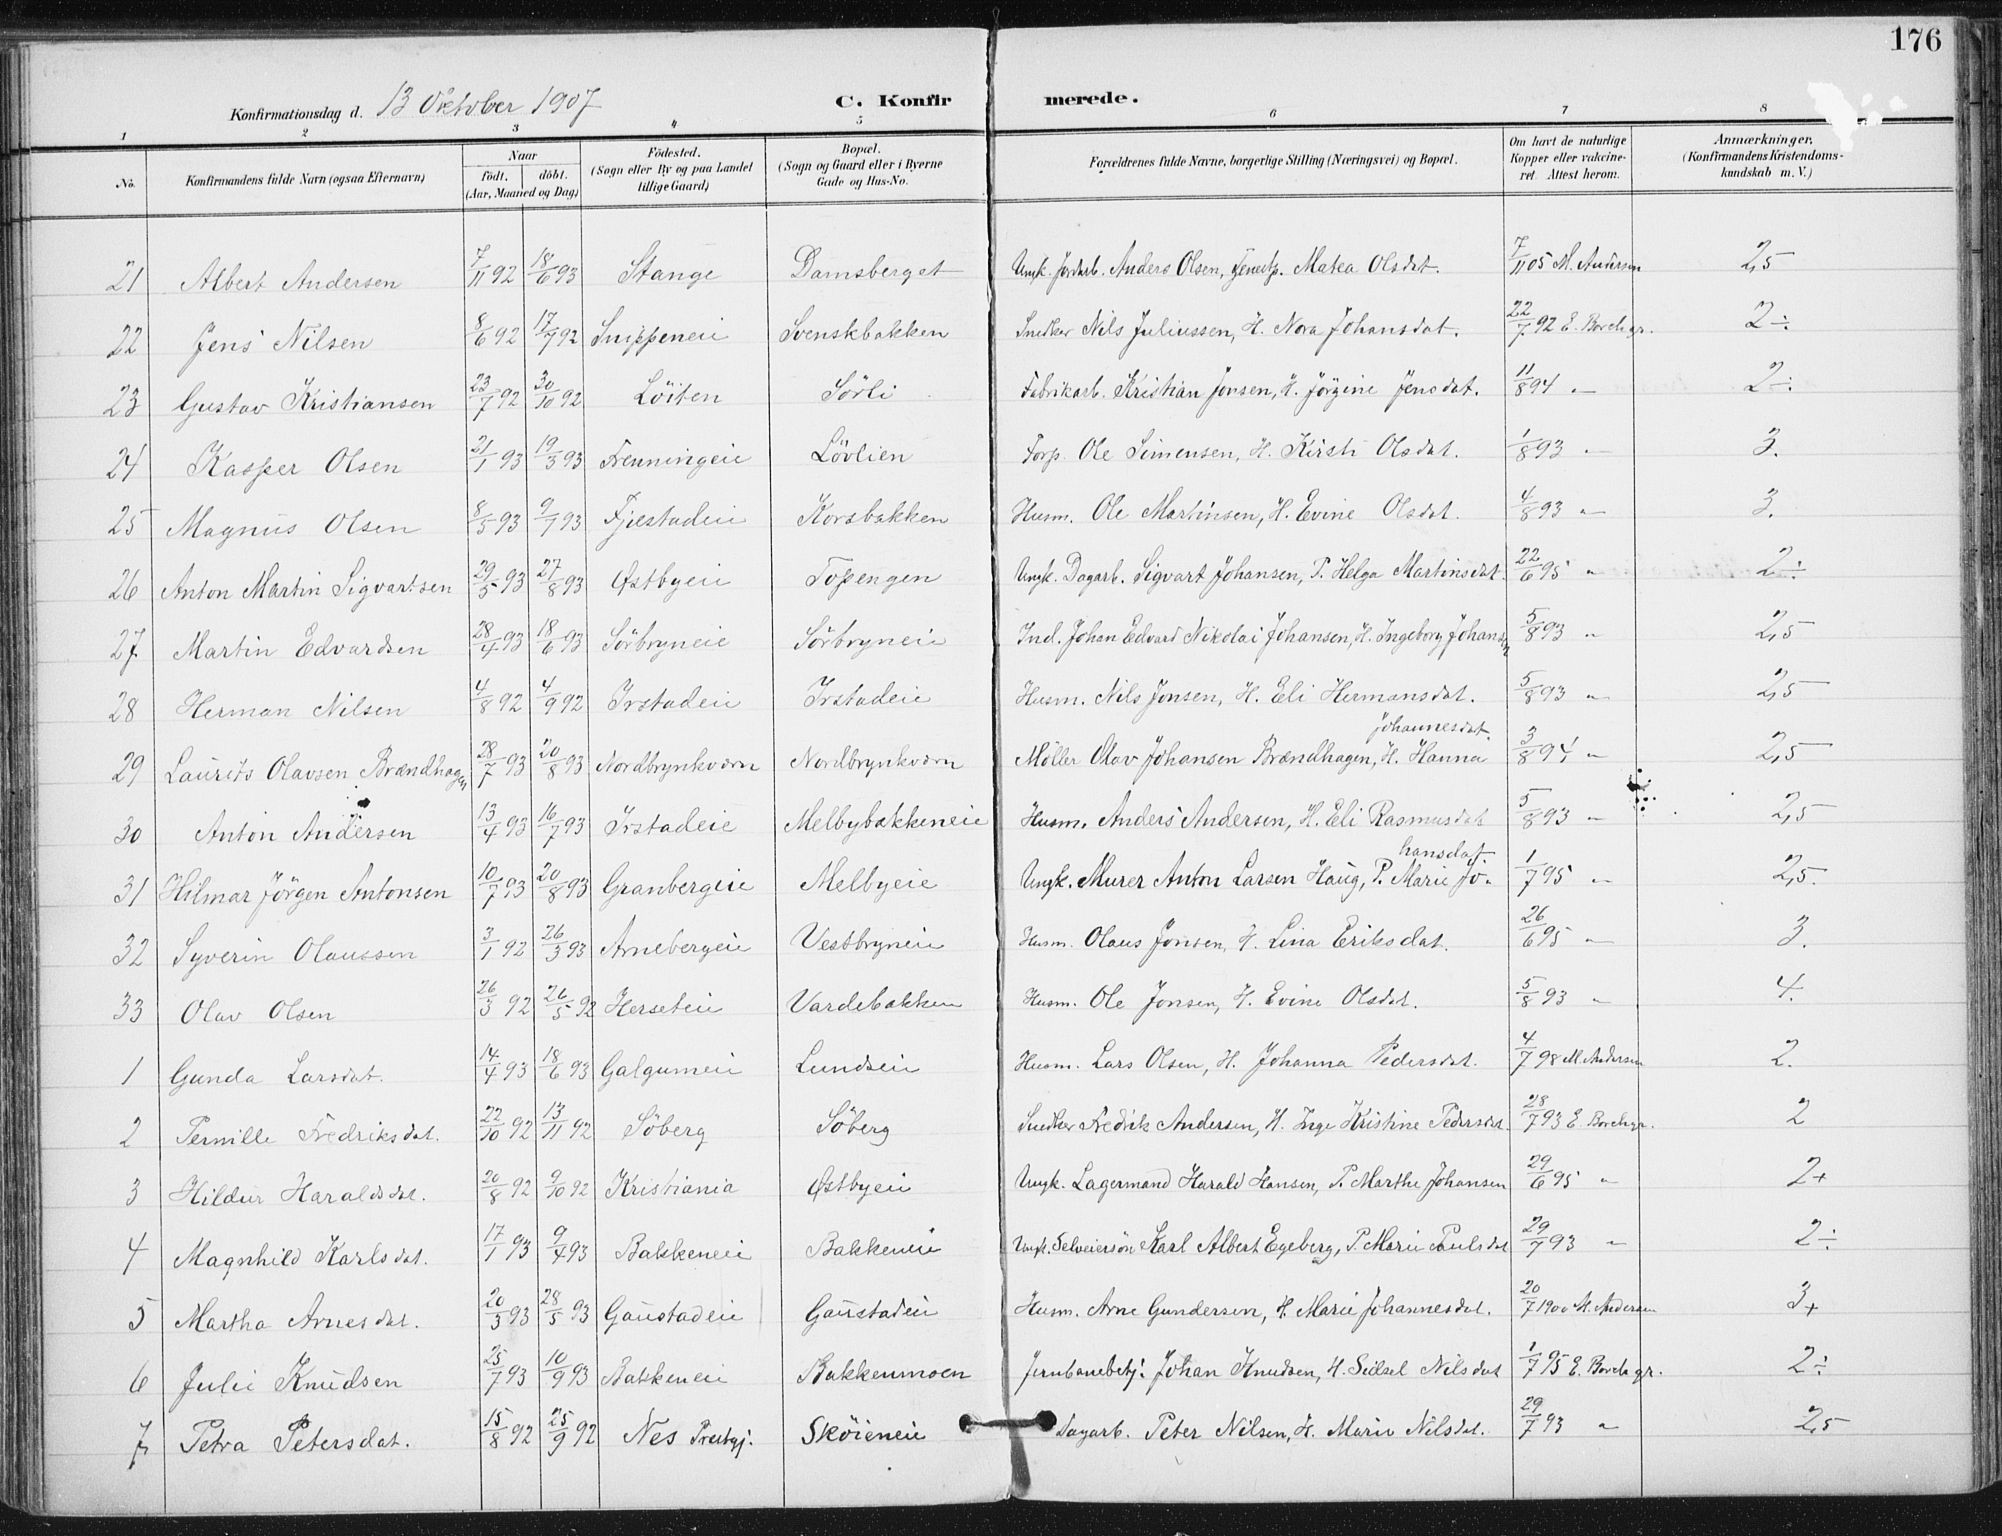 176
Konfirmationsdag d. 13 Oktober 1907 C. Konfir merede.
1 2 3 4 5 6 7 8
No. Konfirmandens fulde Navn (ogsaa Efternavn) Naar födt. döbt. (Aar, Maaned og Dag) Födested. (Sogn eller By og paa Landet tillige Gaard) Bopæl. (Sogn og Gaard eller i Byerne Gade og Hus-No. Forældrenes fulde Navne, borgerlige Stilling (Næringsvei) og Bopæl. Om havt de naturlige Kopper eller vakcineret. Attest herom. Anmærkninger. (Konfirmandens Kristendomskundskab m. V.)
21 Albert Andersen 7/11 92 18/6 93 Stange Damsberget Ungk. Jordarb. Anders Olsen, Matea Olsdat. 7/11 05 M. Andersen 2,5
22 Jens Nilsen 8/6 92 17/7 92 Snippeneie Svenskbakken Snedker Nils Juliussen, H. Nora Johansdat. 22/7 92 E. Borchgr. 2÷
23 Gustav Kristiansen 23/7 92 30/10 92 Löiten Sörli Fabrikarb. Kristian Jonsen, H. Jörgine Jensdat. 11/8 94 " 2÷
24 Kasper Olsen 21/1 93 19/3 93 Frenningeie Lövlien Forp. Ole Simensen, H. Kirsti Olsdat. 1/8 93 " 3.
25 Magnus Olsen 8/5 93 9/7 93 Fjæstadeie Korsbakken Husm. Ole Martinsen, H. Evine Olsdat. 4/8 93 " 3.
26 Anton Martin Sigvartsen 29/5 93 27/8 93 Østbyeie Topengen Ungk. Dagarb. Sigvart Johansen, P. Helga Martinsdat. 22/6 95 " 2÷
27 Martin Edvardsen 28/4 93 18/6 93 Sörbryneie Sörbryneie Ind. Johan Edvard Nikolai Johansen, H. Ingeborg Johansen 5/8 93 " 2,5
28 Herman Nilsen 4/8 92 4/9 92 Irstadeie Irstadeie Husm. Nils Jonsen, H. Eli Hermansdat. 5/8 93 " 2,5
29 Laurits Olavsen Brændhagen 28/7 93 20/8 93 Nordbrynkværn Nordbrynkværn Möller Olav Johansen Brændhagen, H. Hanna Johannesdat. 3/8 94 " 2,5
30 Anton Andersen 13/4 93 16/7 93 Irstadeie Melbybakkeneie Husm. Anders Andersen, H. Eli Rasmusdat 5/8 93 " 2,5
31 Hilmar Jörgen Antonsen 10/7 93 20/8 93 Granbergeie Melbyeie Ungk. Murer Anton Larsen Haug, P. Marie Johansdat. 1/7 95 " 2,5.
32 Syverin Olaussen 3/1 92 26/3 93 Arnebergeie Vestbryneie Husm. Olaus Jonsen, H. Lina Eriksdat. 26/6 95 " 3.
33 Olav Olsen 26/3 92 26/5 92 Herseteie Vardebakken Husm. Ole Jonsen, H. Evine Olsdat. 5/8 93 " 4.
1 Gunda Larsdat. 14/4 93 18/6 93 Galgumeie Lundseie Husm. Lars Olsen, H. Johanna Pedersdat. 4/7 98 M. Andersen 2.
2 Pernille Fredriksdat. 22/10 92 13/11 92 Söberg Söberg Snedker Fredrik Andersen, H. Inge Kristine Pedersdat. 28/7 93 E. Borchgr. 2
3 Hildur Haraldsdat. 20/8 92 9/10 92 Kristiania Østbyeie Ungk. Lagermand Harald Hansen, P. Marthe Johansen 29/6 95 " 2+
4 Magnhild Karlsdat. 17/1 93 9/4 93 Bakkeneie Bakkeneie Ungk. Selveiersön Karl Albert Egeberg, P. Marie Paulsdat 29/7 93 " 2÷
5 Martha Arnesdat. 20/3 93 28/5 93 Gaustadeie Gaustadeie Husm. Arne Gundersen, H. Marie Johannesdat. 20/7 1900 M. Andersen 3+
6 Julie Knudsen 25/7 93 10/9 93 Bakkeneie Bakkenmoen Jernbanebetj. Johan Knudsen, H. Sidsel Nilsdat 1/7 95 E. Borchgr. 2÷
7 Petra Petersdat. 15/8 92 25/9 92 Nes Prestgj. Sköieneie Dagarb. Peter Nilsen, H. Marie Nilsdat. 29/7 93 " 2,5